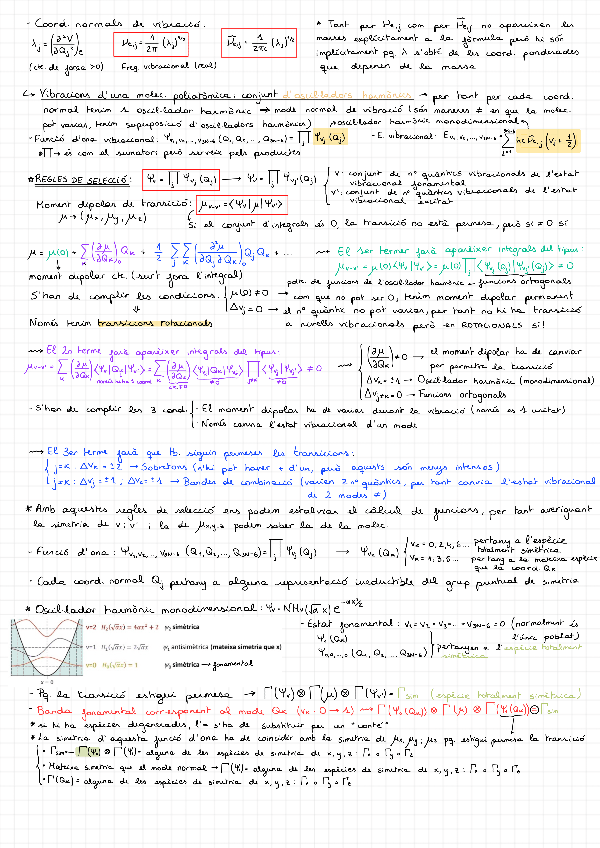 - Coord. normals de vibració.
λj = (∂²V/∂Qj²)e   νe,j = 1/2π (λj)^1/2   ν̃e,j = 1/2πc (λj)^1/2
(cte. de força >0)   Freq. vibracional (real)
* Tant per νe,j com per ν̃e,j no apareixen les
masses explícitament a la fórmula però hi són
implícitament pq λ s'obté de les coord. ponderades
que depenen de la massa
↳ Vibracions d'una molec. poliatòmica: conjunt d'oscil·ladors harmònics → per tant per cada coord.
normal tenim 1 oscil·lador harmònic → mode normal de vibració (són maneres ≠ en que la molec.
pot vibrar, tenim superposició d'oscil·ladors harmònics)   oscil·lador harmònic monodimensional
- Funció d'ona vibracional: Ψv1,v2,...,v3N-6 (Q1,Q2,..., Q3N-6) = ∏j Ψvj (Qj)   - E. vibracional: Ev1,v2,...,v3N-6 = Σ hcν̃e,j (vj + 1/2)
* ∏ → és com el sumatori però serveix pels productes
* REGLES DE SELECCIÓ:   Ψv = ∏j Ψvj → Ψv' = ∏j Ψvj' (Qj)
v: conjunt de nº quàntics vibracionals de l'estat
vibracional fonamental
v': conjunt de nº quàntics vibracionals de l'estat
vibracional excitat
Moment dipolar de transició: μv→v' = <Ψv|μ|Ψv'>
μ → (μx, μy, μz)
Si el conjunt d'integrals és 0, la transició no està permesa, però si ≠ 0 sí
μ = μ(0) + Σk (∂μ/∂Qk)0 Qk + 1/2 Σj Σk (∂²μ/∂Qj∂Qk)0 Qj Qk + ...
moment dipolar cte. (surt fora l'integral)
⇝ El 1er terme farà aparèixer integrals del tipus:
μv→v' = μ(0) <Ψv|Ψv'> = μ(0) ∏j <Ψvj (Qj)|Ψvj' (Qj)> ≠ 0
S'han de complir les condicions.
μ(0) ≠ 0 → com que no pot ser 0, tenim moment dipolar permanent
Δvj = 0 → el nº quàntic no pot variar, per tant no hi ha transició
Només tenim transicions rotacionals
a nivells vibracionals però en ROTACIONALS SÍ!
⇝ El 2n terme farà aparèixer integrals del tipus:
(∂μ/∂Qk)0 ≠ 0 → el moment dipolar ha de canviar
per permetre la transició
Δvk = ±1 → Oscil·lador harmònic (monodimensional)
Δvj≠k = 0 → Funcions ortogonals
- S'han de complir les 3 cond.
- El moment dipolar ha de variar durant la vibració (només és 1 unitat)
- Només canvia l'estat vibracional d'un mode
⇝ El 3er terme farà que tb. siguin permeses les transicions:
j=k: Δvk = ±2 → Sobretons (n'hi pot haver + d'un, però aquests són menys intensos)
j≠k: Δvj = ±1; Δvk = ±1 → Bandes de combinació (varien 2 nº quàntics, per tant canvia l'estat vibracional
de 2 modes ≠)
* Amb aquestes regles de selecció ens podem estalviar el càlcul de funcions, per tant averiguant
la simetria de v i v' i la de μx,y,z podem saber la de la molec.
- Funció d'ona: Ψv1,v2,...,v3N-6 (Q1,Q2,...,Q3N-6) = ∏j Ψvj (Qj) → Ψvk (Qk)
vk = 0,2,4,6... pertany a l'espècie
totalment simètrica
vk = 1,3,5... pertany a la mateixa espècie
que la coord Qk
- Cada coord. normal Qj pertany a alguna representació irreductible del grup puntual de simetria
* Oscil·lador harmònic monodimensional: Ψv = NHv(√α x) e^-αx²/2
v=2 H2(√αx) = 4αx² + 2 ψ2 simètrica
v=1 H1(√αx) = 2√αx ψ1 antisimètrica (mateixa simetria que x)
v=0 H0(√αx) = 1 ψ0 simètrica → fonamental
x = 0
- Estat fonamental: v1 = v2 = v3 = ... = v3N-6 = 0 (normalment és
l'únic poblat)
Ψ0 (Qk)
Ψ0,0,..,0 (Q1, Q2, ..., Q3N-6)
pertanyen a l'espècie totalment
simètrica
- Pq. la transició estigui permesa → Γ(Ψv) ⊗ Γ(μ) ⊗ Γ(Ψv') = Γsim (espècie totalment simètrica)
- Banda fonamental corresponent al mode Qk (vk: 0→1) → Γ(Ψ0(Qk)) ⊗ Γ(μ) ⊗ Γ(Ψ1(Qk)) = Γsim
* si hi ha espècies degenerades, l'= s'ha de substituir per un "conté"
* La simetria d'aquesta funció d'ona ha de coincidir amb la simetria de μx, μy i μz pq. estigui permesa la transició
• Γsim = Γ(Ψ0) ⊗ Γ(Ψ1) = alguna de les espècies de simetria de x,y,z: Γx o Γy o Γz
• Mateixa simetria que el mode normal → Γ(Ψ1) = alguna de les espècies de simetria de x,y,z: Γx o Γy o Γz
• Γ(Qk) = alguna de les espècies de simetria de x,y,z: Γx o Γy o Γz